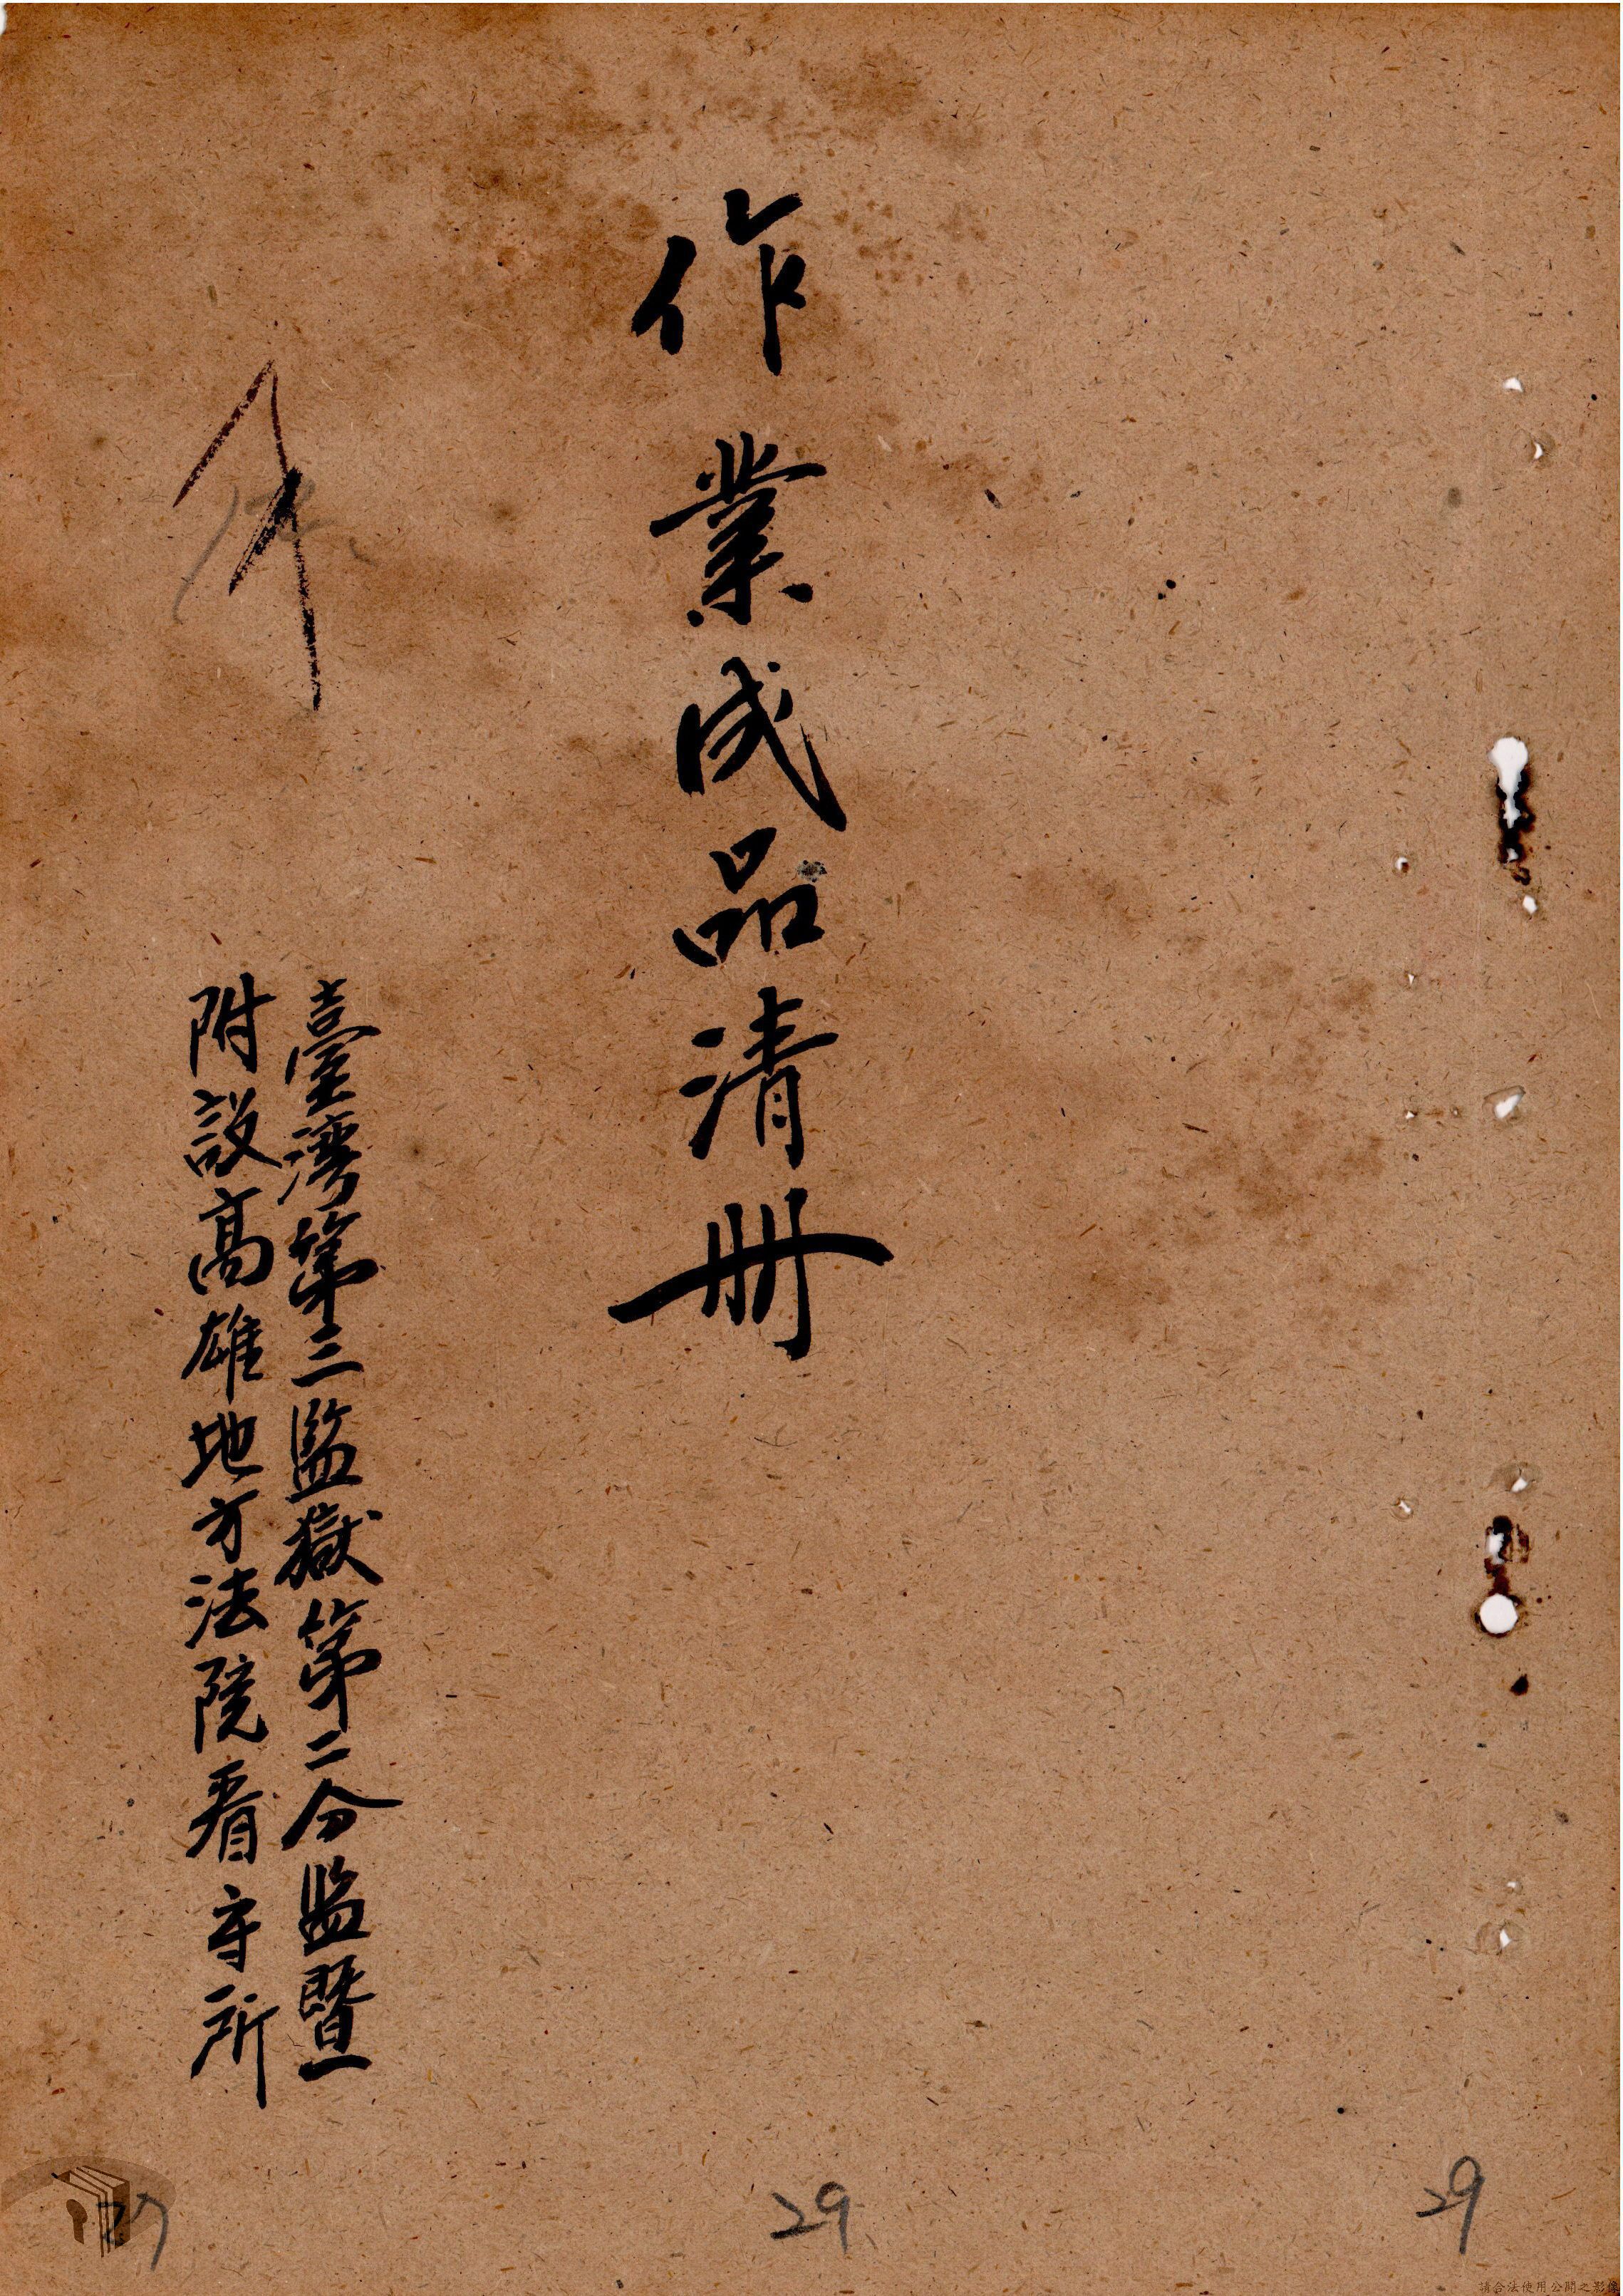 作業成品清册
臺灣第三監獄第二分监暨
附設高雄地方法院看守所
29
29
請合法使用公開之影像